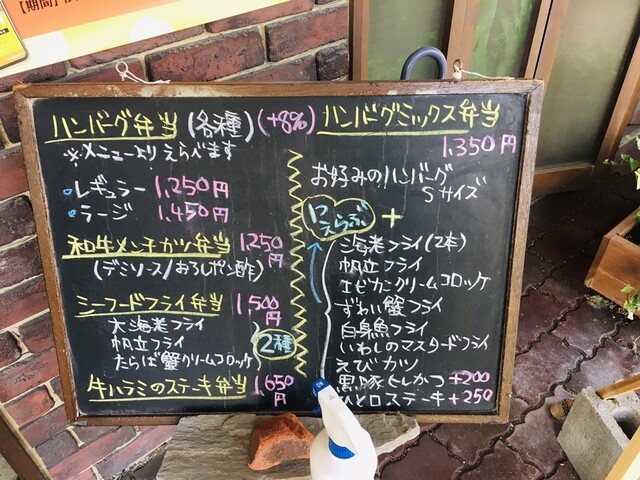 【期間】
ハンバーグ弁当 (各種) (+8%)
※メニューよりえらべます
レギュラー 1,250円
ラージ 1,450円
和牛メンチカツ弁当 1250円
(デミソース/おろしポン酢)
シーフードフライ弁当 1,500円
大海老フライ
帆立フライ
たらば蟹クリームコロッケ
2種
牛ハラミのステーキ弁当 1,650円
ハンバーグミックス弁当
1,350円
お好みのハンバーグ
Sサイズ
えらぶ +
海老フライ(2本)
帆立フライ
エビカニクリームコロッケ
ずわい蟹フライ
白身魚フライ
いわしのマスタードフライ
えびカツ
黒豚ヒレかつ +200
ひと口ステーキ +250